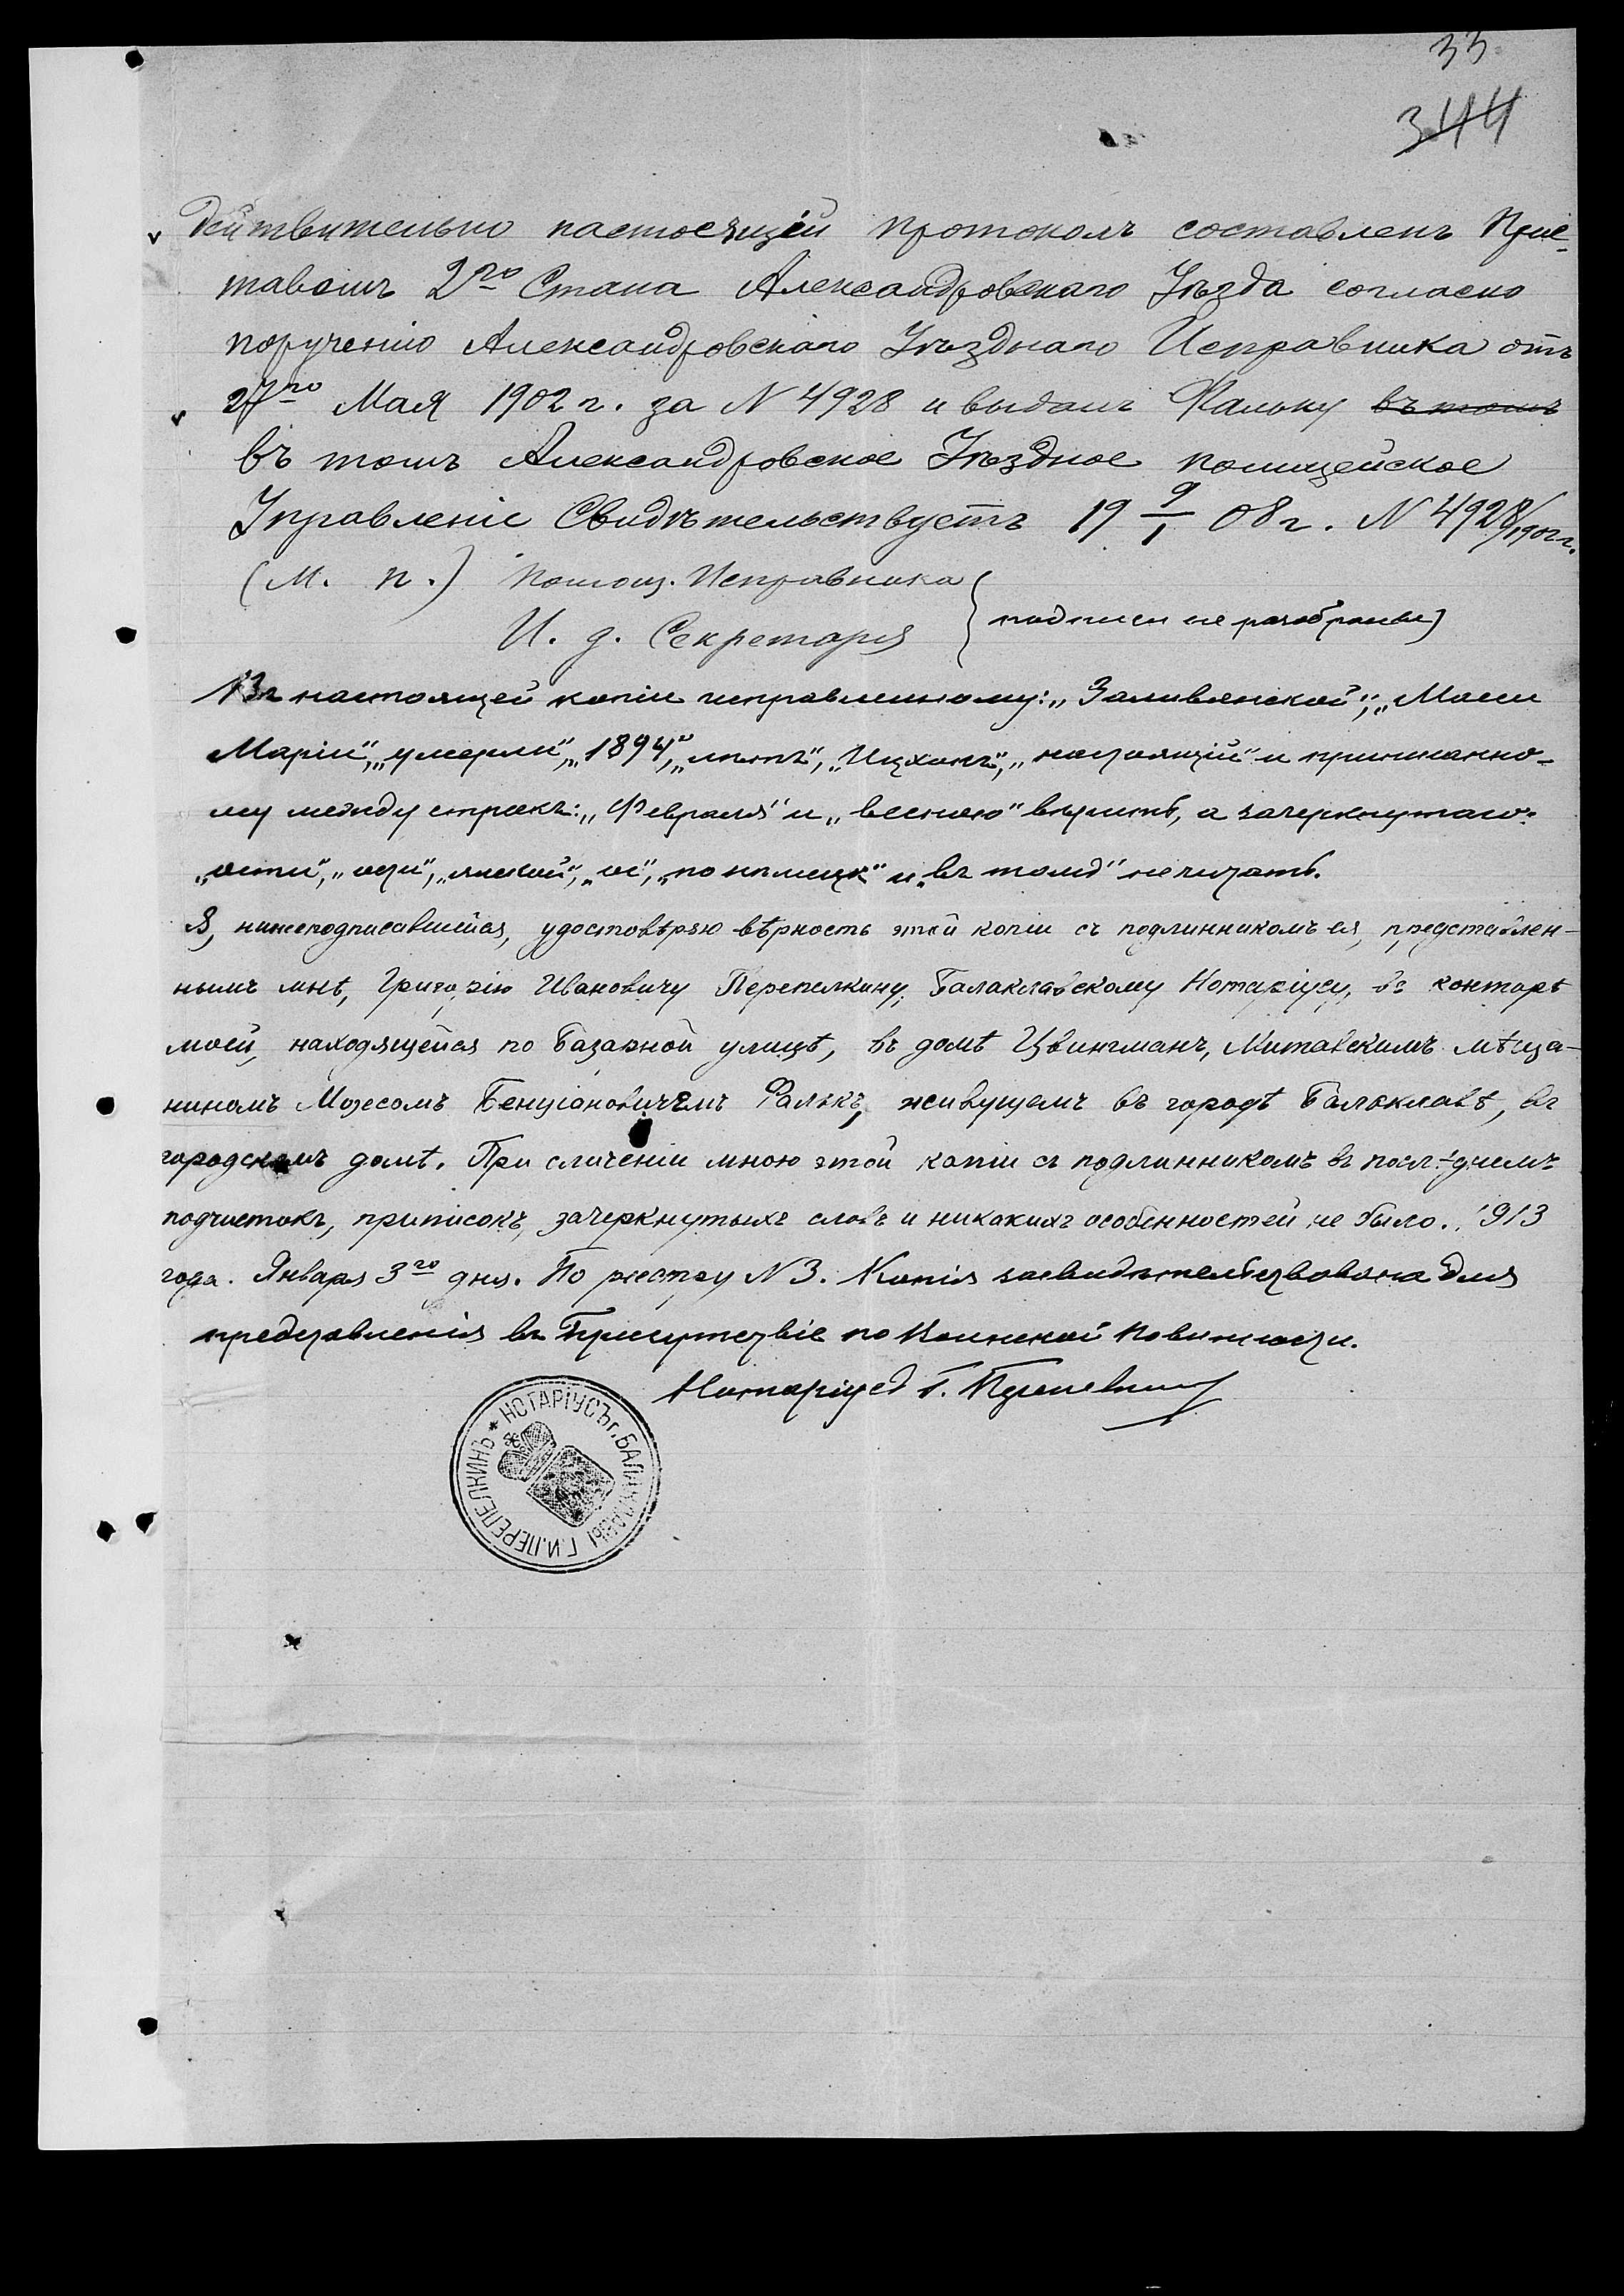 33
344
дѣйтвительно настоящій протоколъ составленъ При-
ставомъ 2го Стана Александровскаго Уѣзда согласно
порученію Александровскаго Уѣзднаго Исправника отъ
27го Мая 1902 г. за N 4928 и выданъ Фальку въ томъ
въ томъ Александровское Уѣздное полицейское
Управленіе Свидѣтельствуетъ 19 9/1 08 г. N 4928/1902 г.
(М. п.) Помощ. Исправника
И. д. Секретаря } подписи не разобраны)
Въ настоящей копіи исправленному: „Заливянской", „Маси
Маріи", „умерли", „1894", „лѣтъ", „Ицхокъ", „настоящій" и приписанно-
му между строкъ: „Февраля" и „весною" вѣрить, а зачеркнутаго:
„ости", „ози", „янской", „ос", „по нѣмецк" и „въ томъ" не читать.
Я, нижеподписавшійся, удостовѣряю вѣрность этой копіи съ подлинникомъ ея, представлен-
нымъ мнѣ, Григорію Ивановичу Перепелкину, Балаклавскому Нотаріусу, въ конторѣ
моей, находящейся по Базарной улицѣ, въ домѣ Цвингманъ, Митавскимъ мѣща-
ниномъ Мозесомъ Бенціановичемъ Фалькъ, живущемъ въ городѣ Балаклавѣ, въ
городскомъ домѣ. При сличеніи мною этой копіи съ подлинникомъ въ послѣднемъ
подчистокъ, приписокъ, зачеркнутыхъ словъ и никакихъ особенностей не было. 1913
года. Января 3го дня. По реестру N 3. Копія засвидѣтельствована для
представленія въ Присутствіе по Воинской повинности.
Нотаріусъ Г. Перепелкинъ
НОТАРІУСЪ г. БАЛАКЛАВЫ Г. И. ПЕРЕПЕЛКИНЪ *